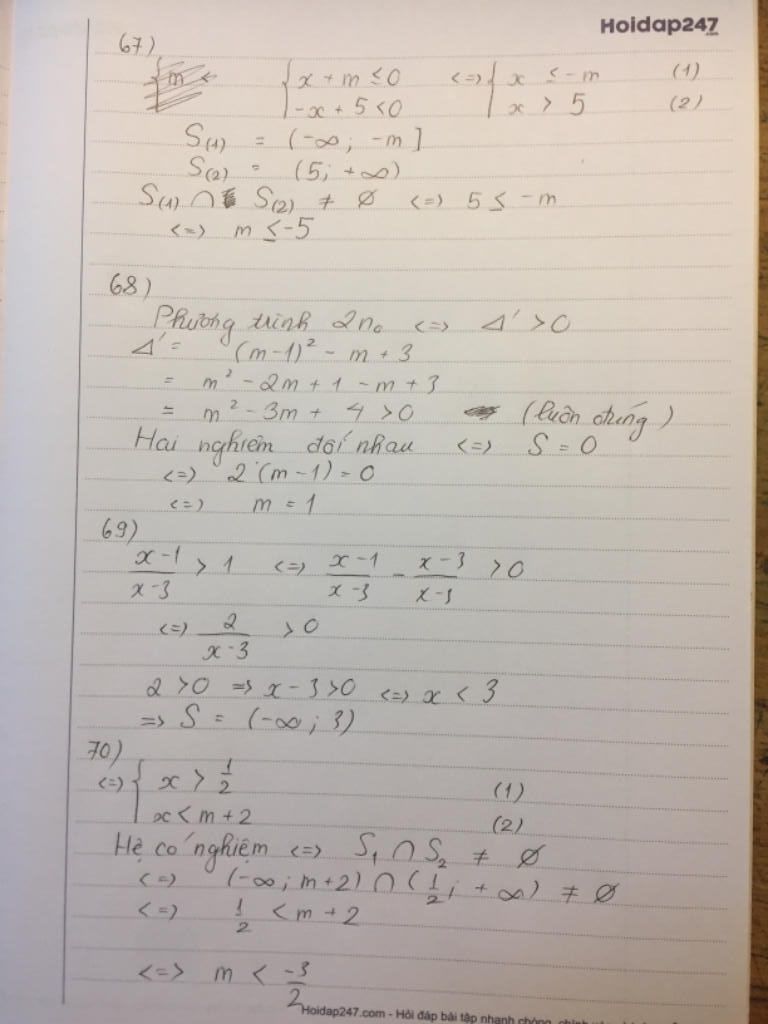 Hoidap247
67)
{ x + m ≤ 0 <=> { x ≤ -m (1)
{ -x + 5 < 0 { x > 5 (2)
S(1) = (-∞; -m]
S(2) = (5; +∞)
S(1) ∩ S(2) ≠ ∅ <=> 5 ≤ -m
<=> m ≤ -5
68)
Phương trình 2n₀ <=> Δ' > 0
Δ' = (m-1)² - m + 3
= m² - 2m + 1 - m + 3
= m² - 3m + 4 > 0 (luôn đúng)
Hai nghiệm đối nhau <=> S = 0
<=> 2(m-1) = 0
<=> m = 1
69)
(x-1)/(x-3) > 1 <=> (x-1)/(x-3) - (x-3)/(x-3) > 0
<=> 2/(x-3) > 0
2 > 0 => x - 3 > 0 <=> x < 3
=> S = (-∞; 3)
70)
<=> { x > 1/2 (1)
{ x < m + 2 (2)
Hệ có nghiệm <=> S₁ ∩ S₂ ≠ ∅
<=> (-∞; m+2) ∩ (1/2; +∞) ≠ ∅
<=> 1/2 < m + 2
<=> m < -3/2
Hoidap247.com - Hỏi đáp bài tập nhanh chóng, chính